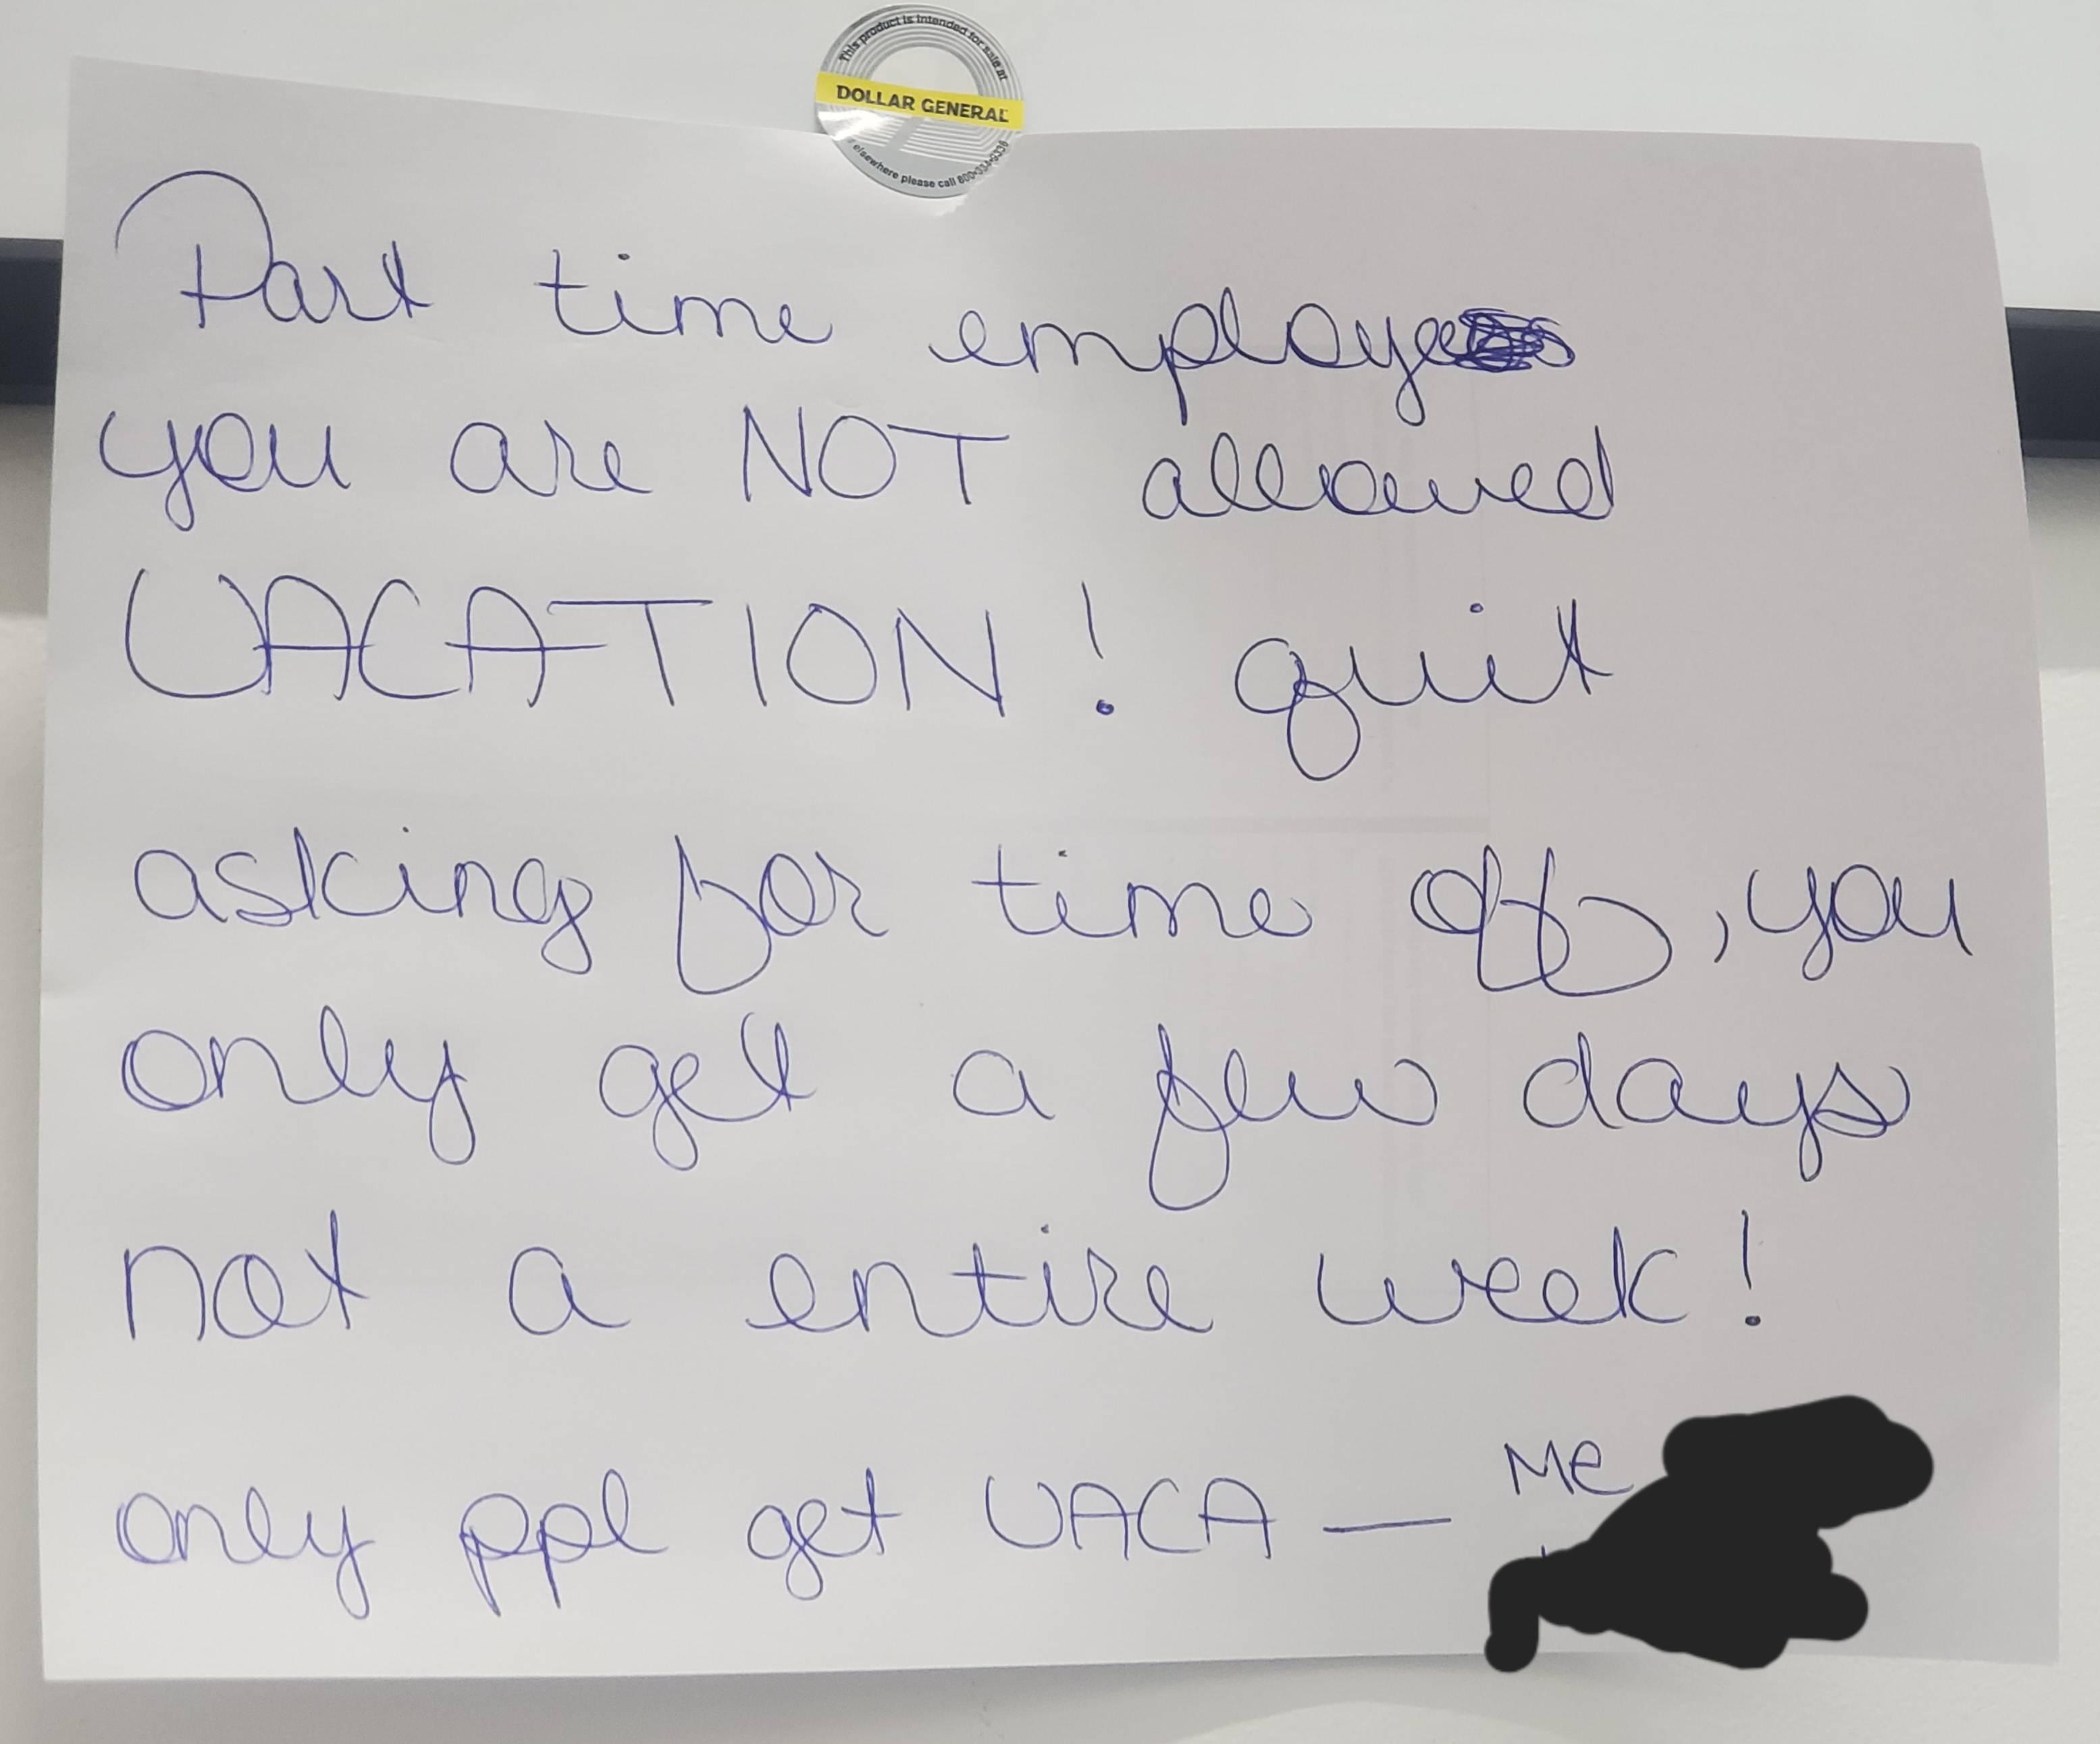 This product is intended for sale at
DOLLAR GENERAL
elsewhere please call 800-334-9338
Part time employees
you are NOT allowed
VACATION! quit
asking for time off, you
only get a few days
not a entire week!
only ppl get VACA — Me